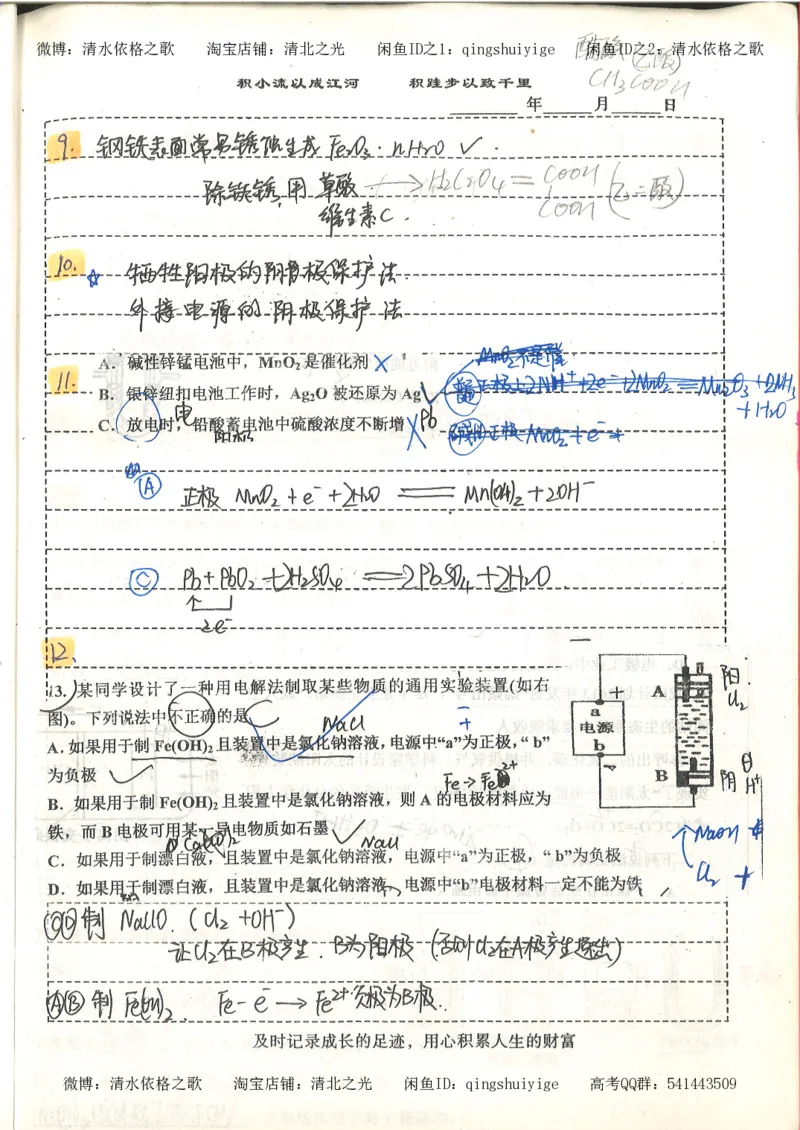 微博：清水依格之歌 淘宝店铺：清北之光 闲鱼ID之1：qingshuiyige 闲鱼ID之2：清水依格之歌
醋酸(乙酸)
CH3COOH
积小流以成江河 积跬步以致千里
年 月 日
9. 钢铁表面常易锈蚀生成 Fe2O3·nH2O ✓.
除铁锈,用 草酸 → H2C2O4 = COOH COOH (乙二酸)
维生素C.
10. ☆ 牺牲阳极的阴极保护法.
外接电源的阴极保护法
11.
A. 碱性锌锰电池中，MnO2是催化剂 ×
B. 银锌纽扣电池工作时，Ag2O 被还原为 Ag ✓
C. 放电时，铅酸蓄电池中硫酸浓度不断增 ×
电 Pb
正极 2NH4+ +2e- +2MnO2 = Mn2O3+2NH3
+H2O
正极 MnO2+e-+
Ⓐ 正极 MnO2+e-+2H2O = Mn(OH)2+2OH-
Ⓒ Pb+PbO2+2H2SO4 = 2PbSO4+2H2O.
2e-
12.
13. 某同学设计了一种用电解法制取某些物质的通用实验装置(如右
图)。下列说法中不正确的是 C
NaCl
A. 如果用于制 Fe(OH)2且装置中是氯化钠溶液，电源中“a”为正极，“ b”
为负极 ✓
Fe→Fe2+
B．如果用于制 Fe(OH)2且装置中是氯化钠溶液，则 A 的电极材料应为
铁，而 B 电极可用某一导电物质如石墨 ✓
NaCl
C．如果用于制漂白液，且装置中是氯化钠溶液，电源中“a”为正极，“ b”为负极
D．如果用于制漂白液，且装置中是氯化钠溶液，电源中“b”电极材料一定不能为铁
+
a
电源
b
A
B
阳.
Cl2
阴 H+
NaOH
Cl2
ⒸⒹ 制 NaClO. (Cl2+OH-)
让Cl2在B极产生. B为阳极 (否则Cl2在A极产生逸出)
ⒶⒷ 制 Fe(OH)2. Fe-e-→Fe2+ 负极为B极.
及时记录成长的足迹，用心积累人生的财富
微博：清水依格之歌 淘宝店铺：清北之光 闲鱼ID：qingshuiyige 高考QQ群：541443509